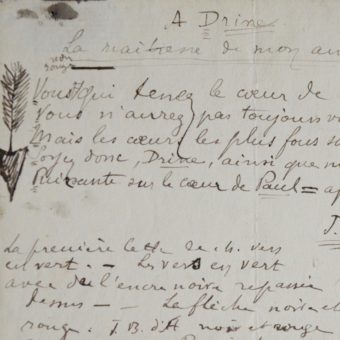 A Drine
La maitresse de mon am
non
rouge
Vous qui tenez le cœur de
Vous n'aurez pas toujours vi
Mais les cœurs les plus fous so
Soyez donc, Drine, ainsi que m
Puissante sur le cœur de Paul = ap
J.
La première lettre de ch. vers
en vert. — Les vers en vert
avec de l'encre noire repassée
dessus — — La flèche noire et
rouge. J.B. d'A noir et rouge